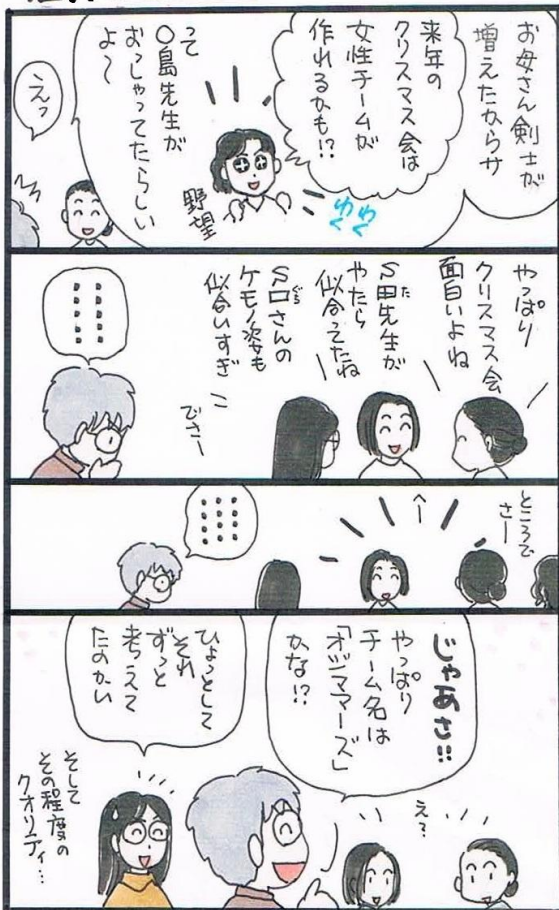 お母さん剣士が
増えたからサ
来年の
クリスマス会は
女性チームが
作れるかも!?
って
〇島先生が
おっしゃってたらしい
よ〜
野望
わく
わく
えっ
やっぱり
クリスマス会
面白いよね
S田先生が
た
やたら
似合ってたね
S口さんの
ぐち
ケモノ姿も
似合いすぎ
でさー
ところで
さー
じゃあさ!!
やっぱり
チーム名は
「オツママーズ」
かな!?
え?
ひょっとして
それ
ずっと
考えて
たのかい
そして
その程度の
クオリティ…